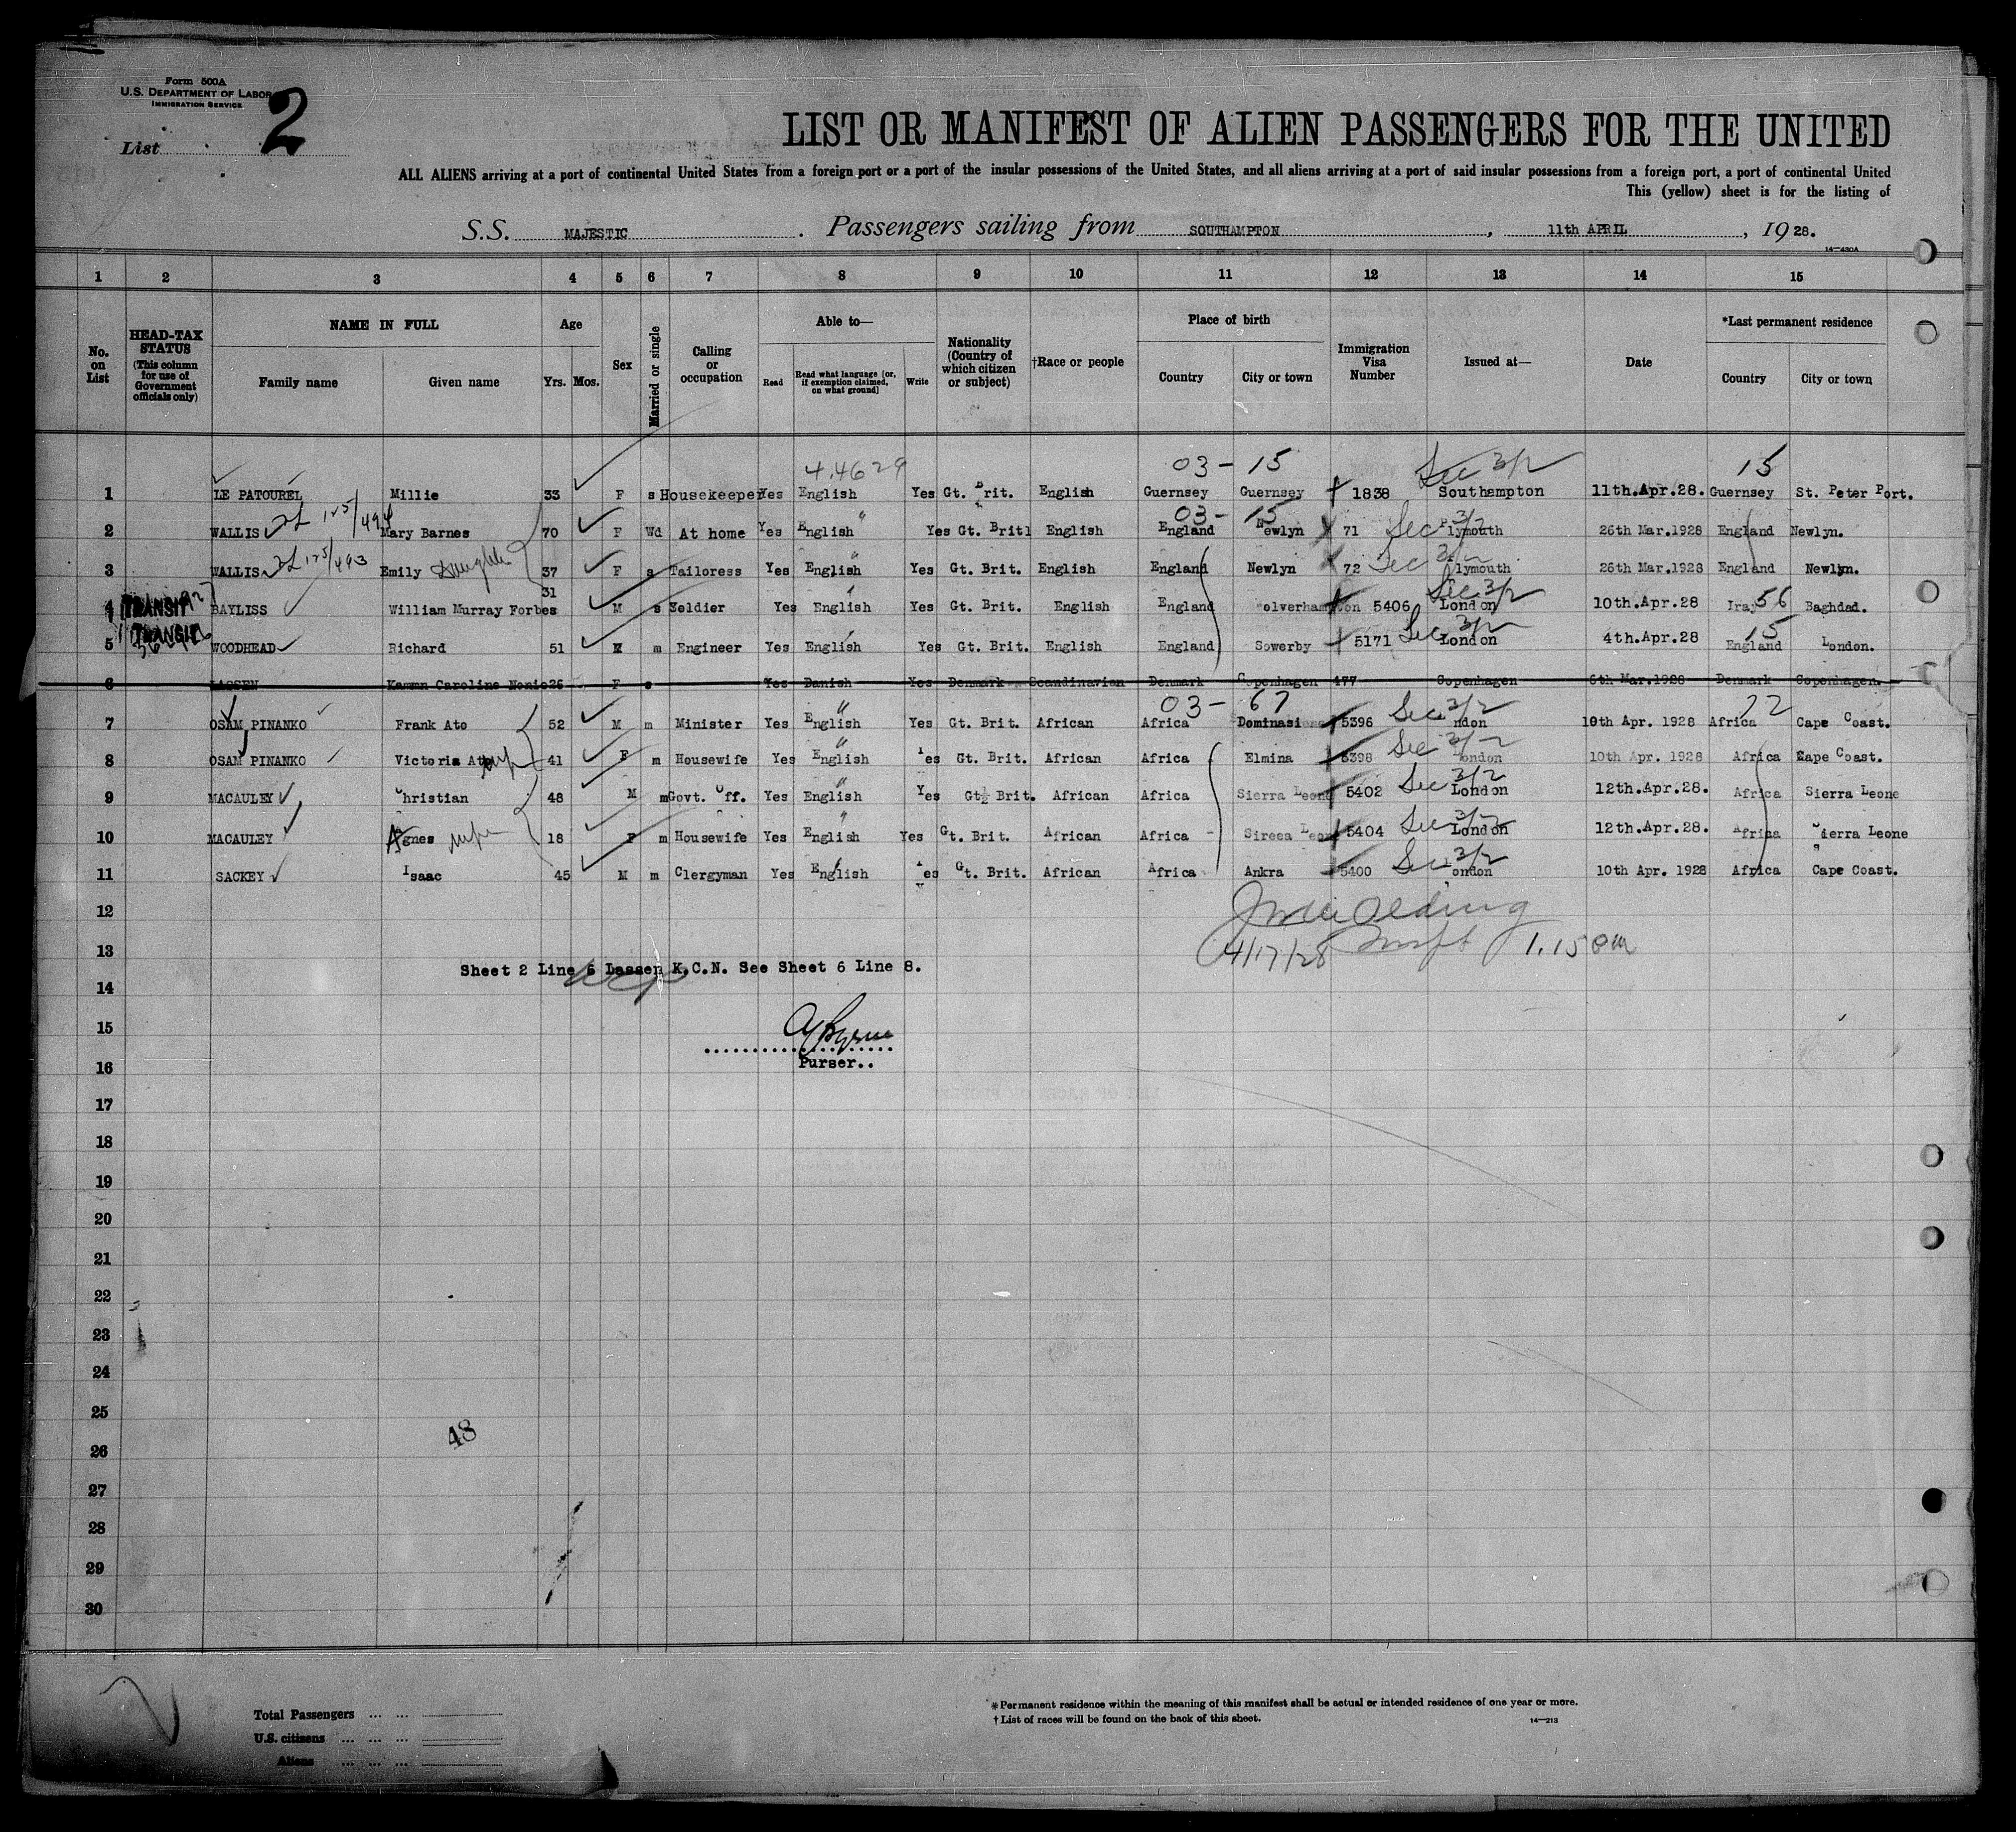 Form 500A
U.S. DEPARTMENT OF LABOR
IMMIGRATION SERVICE
List 2
LIST OR MANIFEST OF ALIEN PASSENGERS FOR THE UNITED
ALL ALIENS arriving at a port of continental United States from a foreign port or a port of the insular possessions of the United States, and all aliens arriving at a port of said insular possessions from a foreign port, a port of continental United
This (yellow) sheet is for the listing of
S.S. MAJESTIC . Passengers sailing from SOUTHAMPTON , 11th APRIL , 19 28.
14—430A
1 2 3 4 5 6 7 8 9 10 11 12 13 14 15
No. on List
HEAD-TAX STATUS (This column for use of Government officials only)
NAME IN FULL
Family name
Given name
Age
Yrs. Mos.
Sex
Married or single
Calling or occupation
Able to—
Read
Read what language [or, if exemption claimed, on what ground]
Write
Nationality (Country of which citizen or subject)
†Race or people
Place of birth
Country
City or town
Immigration Visa Number
Issued at—
Date
*Last permanent residence
Country
City or town
4.4629 03 - 15 Sec 3/2 15
1 LE PATOUREL Millie 33 F s Housekeeper Yes English Yes Gt. Brit. English Guernsey Guernsey 1838 Southampton 11th.Apr.28. Guernsey St. Peter Port.
03 - 15
2 WALLIS 125/494 Mary Barnes 70 F Wd At home Yes English Yes Gt. Britl English England Newlyn 71 Sec 3/2 Plymouth 26th Mar.1928 England Newlyn.
3 WALLIS 125/493 Emily Daughter 37 F s Tailoress Yes English Yes Gt. Brit. English England Newlyn 72 Sec 3/2 Plymouth 26th Mar.1928 England Newlyn.
4 TRANSIT BAYLISS William Murray Forbes 31 M s Soldier Yes English Yes Gt. Brit. English England Wolverhampton 5406 Sec 3/2 London 10th.Apr.28 Iraq 56 Baghdad.
5 TRANSIT WOODHEAD Richard 51 M m Engineer Yes English Yes Gt. Brit. English England Sowerby 5171 Sec 3/2 London 4th.Apr.28 15 England London.
6 LASSEN Karen Caroline Nonie 26 F s Yes Danish Yes Denmark Scandinavian Denmark Copenhagen 477 Copenhagen 6th Mar.1928 Denmark Copenhagen.
03 - 67
7 OSAM PINANKO Frank Ato 52 M m Minister Yes English Yes Gt. Brit. African Africa Dominasi 5396 Sec 3/2 ndon 10th Apr. 1928 Africa 72 Cape Coast.
8 OSAM PINANKO Victoria Ato wife 41 F m Housewife Yes English Yes Gt. Brit. African Africa Elmina 5398 Sec 3/2 London 10th Apr. 1928 Africa Cape Coast.
9 MACAULEY Christian 48 M m Govt. Off. Yes English Yes Gt½ Brit. African Africa Sierra Leone 5402 Sec 3/2 London 12th.Apr.28. Africa Sierra Leone
10 MACAULEY Agnes wife 18 F m Housewife Yes English Yes Gt. Brit. African Africa Sireea Leone 5404 Sec 3/2 London 12th.Apr.28. Africa Sierra Leone
11 SACKEY Isaac 45 M m Clergyman Yes English Yes Gt. Brit. African Africa Ankra 5400 Sec 3/2 London 10th Apr. 1928 Africa Cape Coast.
12
13 4/17/28 Inspt 1.15 PM
Sheet 2 Line 6 Lassen K.C.N. See Sheet 6 Line 8.
14
15
A Byrne
Purser..
16
17
18
19
20
21
22
23
24
25
48
26
27
28
29
30
Total Passengers
U.S. citizens
Aliens
*Permanent residence within the meaning of this manifest shall be actual or intended residence of one year or more.
†List of races will be found on the back of this sheet.
14—213